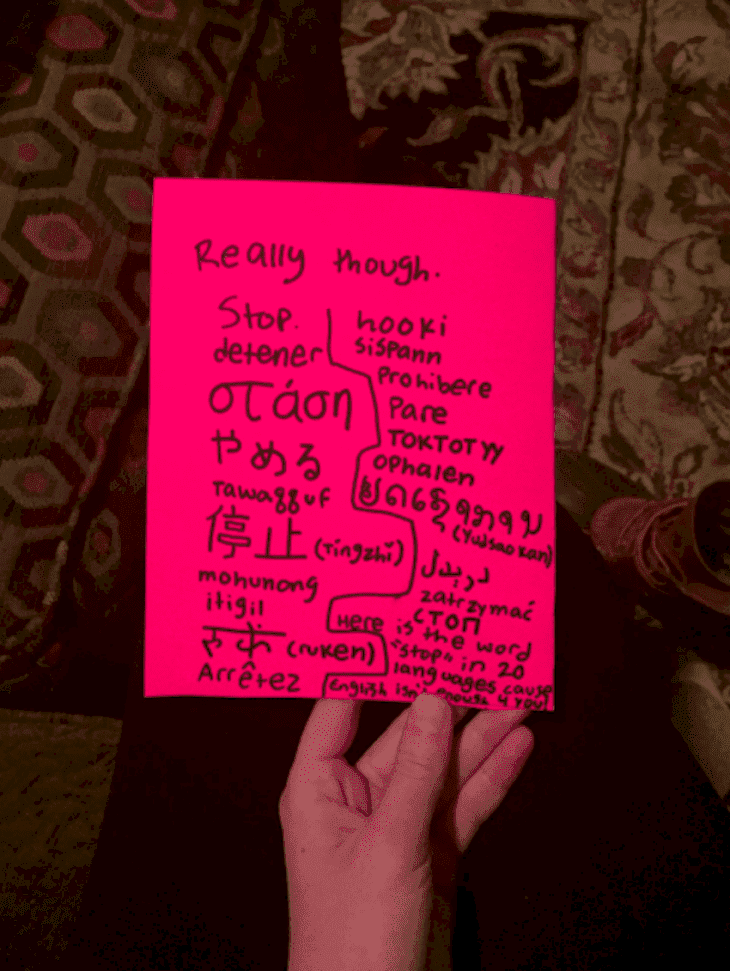 Really though.
Stop.
detener
στάση
やめる
Tawaqquf
停止 (Tíngzhǐ)
mohunong
itigil
(ruken)
Arrêtez
hooki
sispann
Prohibere
Pare
TOKTOTYY
ophalen
(Yudsaokan)
zatrzymać
СТОП
Here is the word
"stop" in 20
languages cause
English isn't enough 4 you!